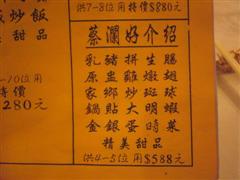 供7-8位用 特價$880元
炒飯
美甜品
-10位用
特價
280元
蔡瀾好介紹
乳豬拼生腸
原盅雞燉翅
家鄉炒斑球
鍋貼大明蝦
金銀蛋時菜
精美甜品
供4-5位用$588元